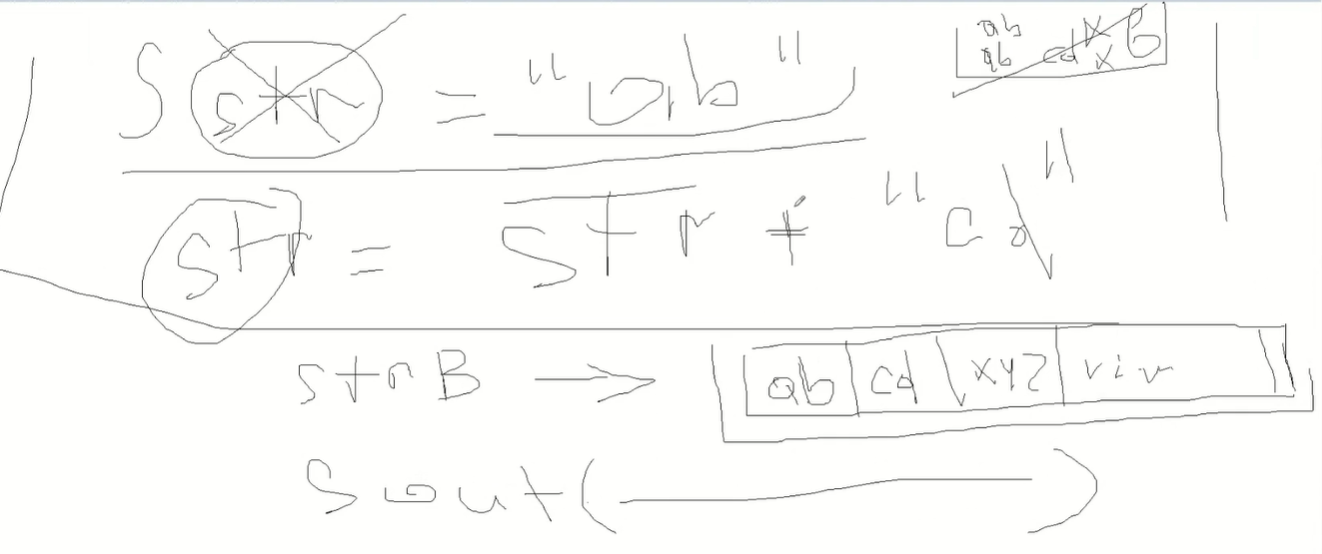 S str = "ab"
ab
ab cd xx B
str = str + "cd"
strB → ab cd xyz
sout( )